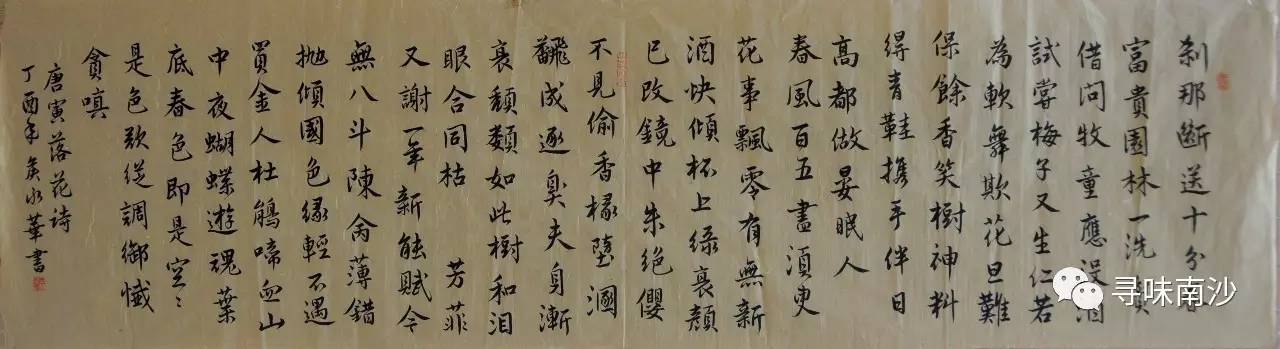 刹那斷送十分春
富貴園林一洗貧
借问牧童應没酒
試嘗梅子又生仁若
為軟舞欺花旦難
保餘香笑樹神料
得青鞋攜手伴日
高都做晏眠人
春風百五盡湏臾
花事飄零有無新
酒快傾杯上绿衰顔
已改鏡中朱绝纓
不見偷香椽堕溷
飜成逐臭夫身漸
衰頽類如此樹和泪
眼合同枯 芳菲
又謝一年新能賦今
無八斗陳禽薄錯
抛傾國色緣輕不遇
買金人杜鵑啼血山
中夜蝴蝶遊魂葉
底春色即是空〻
是色欲從調御懴
貪嗔
唐寅落花诗
丁酉年矦冰華書
寻味南沙